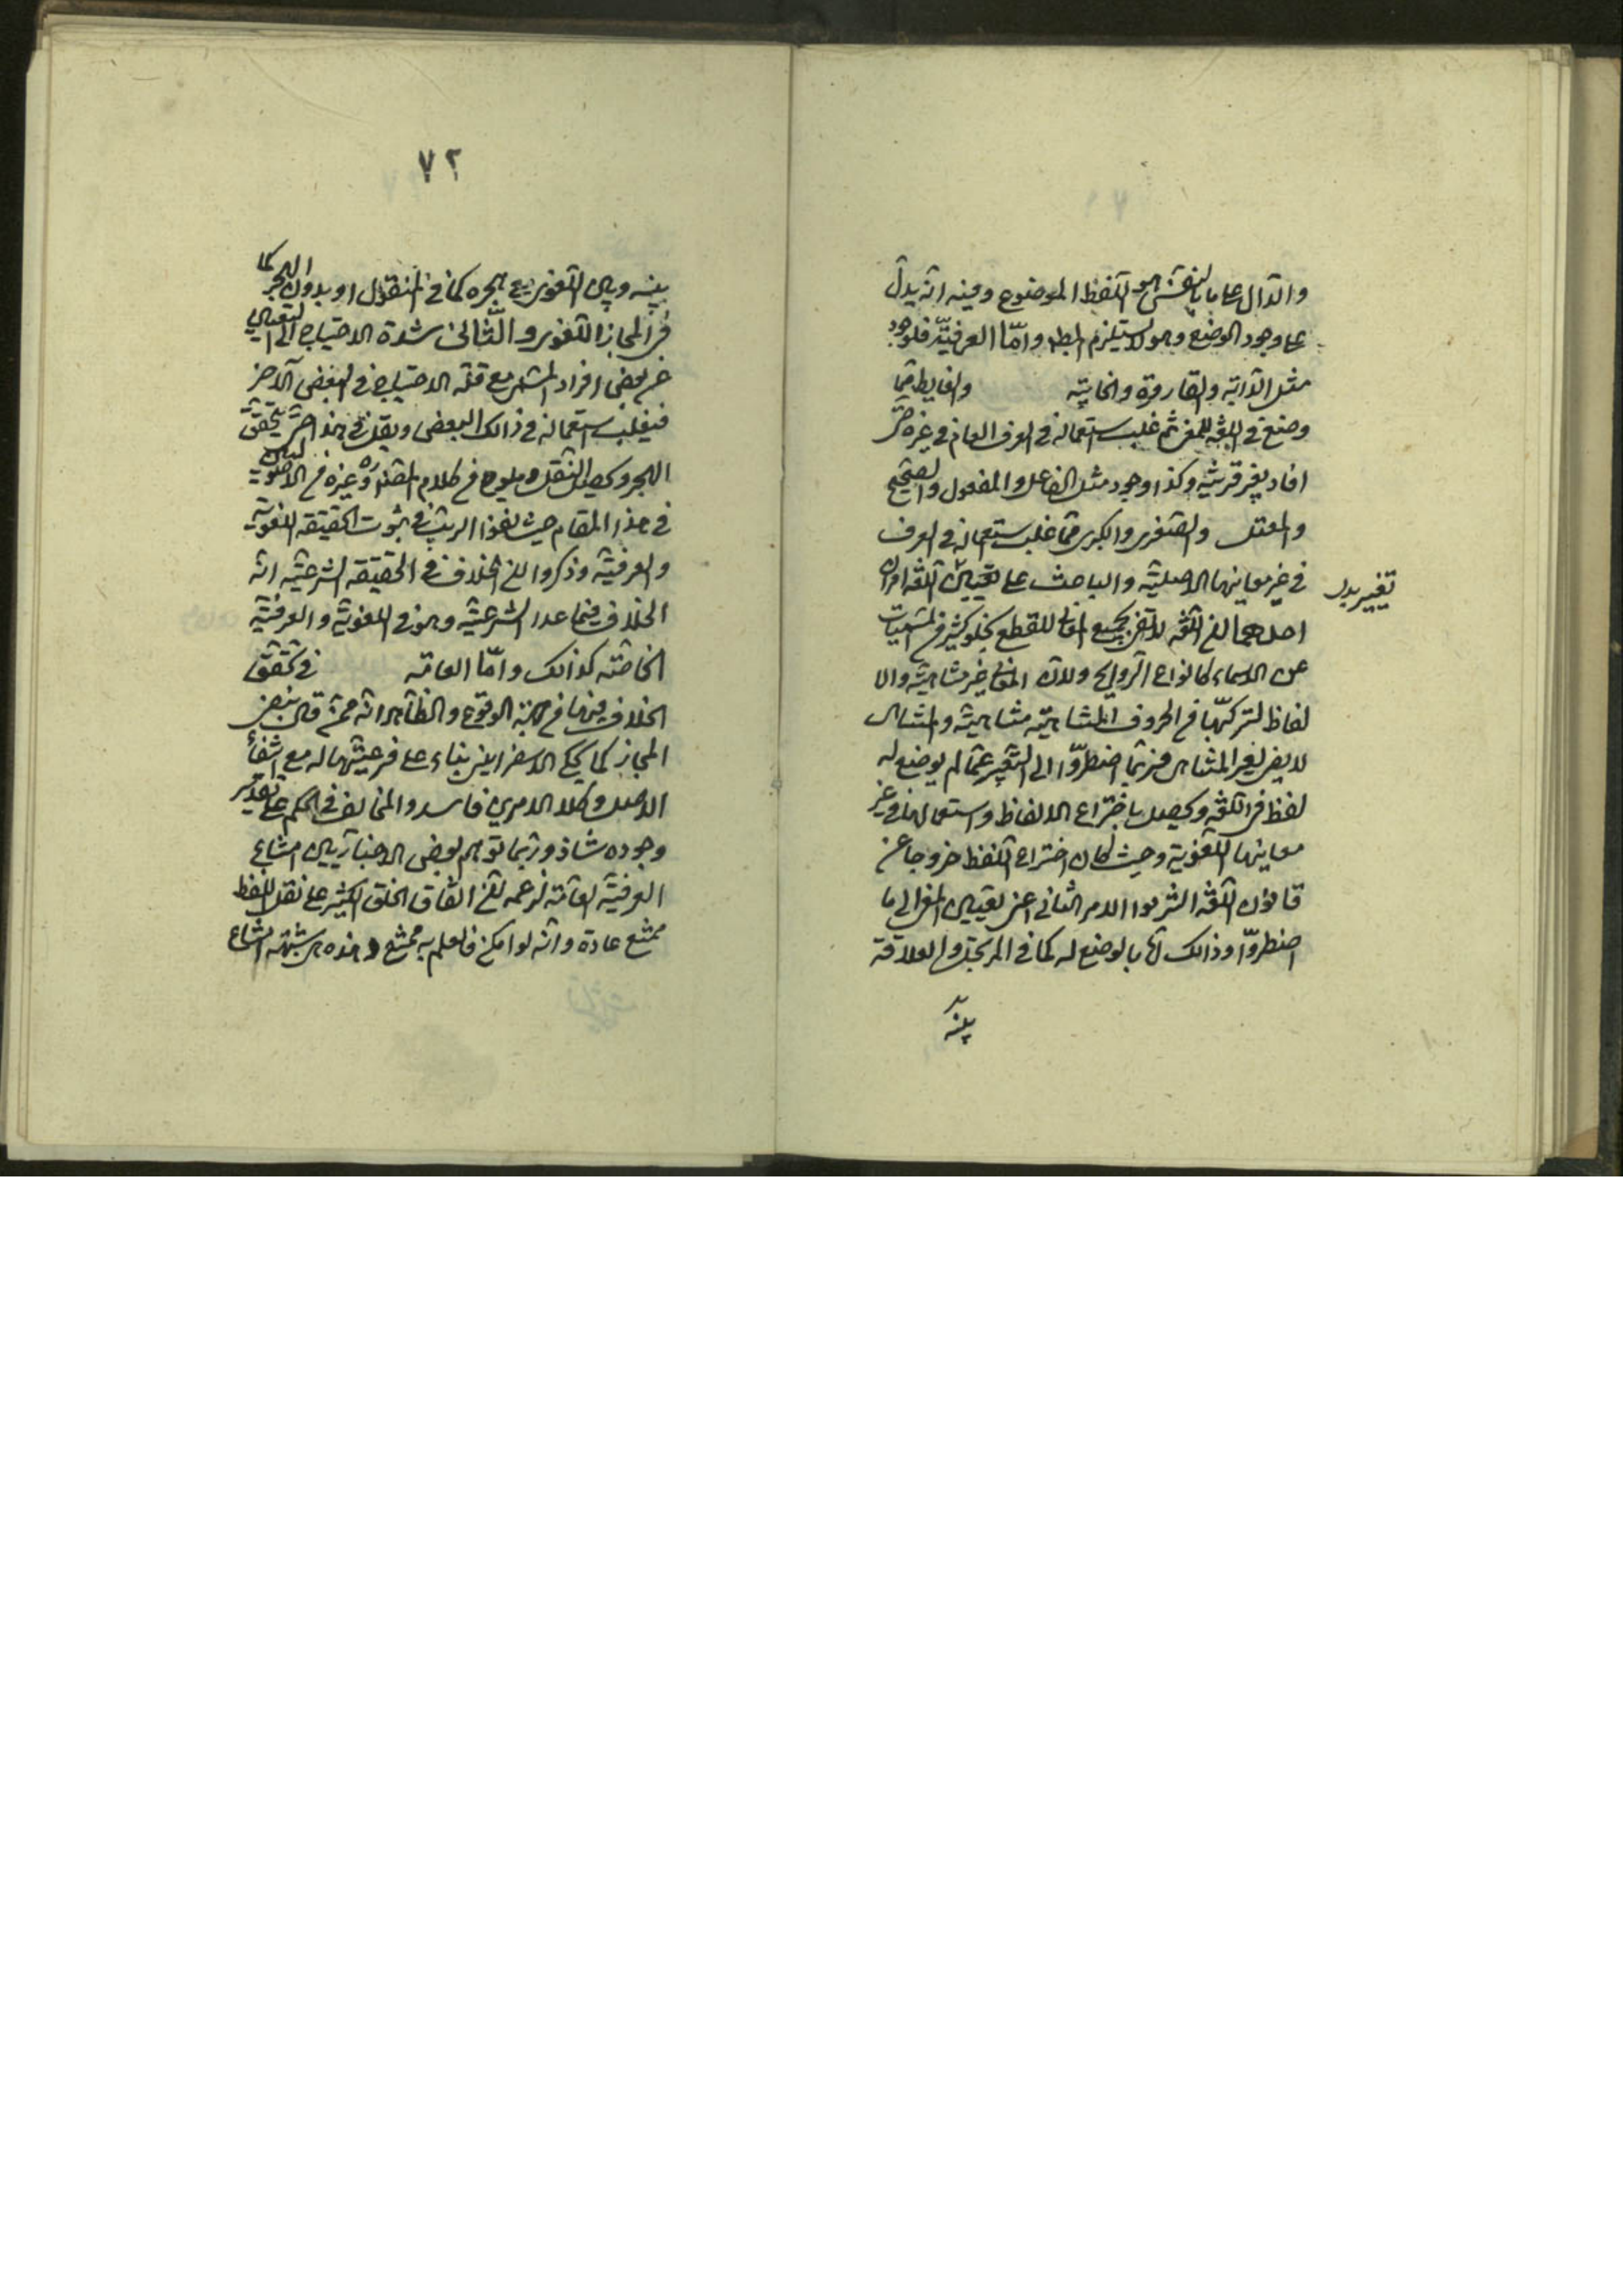 والدال على ما بالنفس هو اللفظ الموضوع وفيه انه يدل
على وجود الوضع وهو لا يستلزم المط واما العرفية فلوجود
مثل الدابة والقارورة والخابية والغايط مما
وضع في اللغة لمعنى ثم غلب استعماله في العرف العام في غيره حتى
افاد بغير قرينة وكذا وجود مثل الفاعل والمفعول والصحيح
والمعتل والصغرى والكبرى مما غلب استعماله في العرف
في غير معاينها الاصلية والباعث على تعيين اللغة امران
تغيير بدل
احدهما ان اللغة لا تفي بجميع المعاني للقطع بخلو كثير من المسميات
عن الاسماء كانواع الروايح ولان المعاني غير متناهية والا
لفاظ لتركبها من الحروف المتناهية متناهية والمتناهي
لا يفي بغير المتناهي فربما اضطروا الى التعبير عما لم يوضع له
لفظ في اللغة ويحصل باختراع الالفاظ واستعمالها في غير
معاينها اللغوية وحيث كان اختراع اللفظ خروجا عن
قانون اللغة التزموا الامر الثاني اعني تعيين المعنى الى ما
اضطروا وذالك اما بالوضع له كما في المرتجل او لعلاقة
بينه
٧٢
بينه وبين اللغوي مع هجره كما في المنقول او بدون الهجر كما
في المجاز اللغوي والثاني شدة الاحتياج الى التعبير
عن بعض افراد المسمى مع قلة الاحتياج في البعض الآخر
فيغلب استعماله في ذالك البعض ويقل في هذا حتى يتحقق
الهجر ويحصل النقل ويلوح من كلام المصنف ره وغيره من الاصوليين
في هذا المقام حيث نفوا الريب في ثبوت الحقيقة اللغوية
والعرفية وذكروا ان الخلاف في الحقيقة الشرعية انه
الخلاف فيما عدا الشرعية وهو في اللغوية والعرفية
الخاصة كذالك واما العامة ففي تحقق
الخلاف فيها من جهة الوقوع والظاهر انه ممن قال بنفي
المجاز كما يحكى الاسفرايني بناء على فرعيتها له مع انتفاء
الاصل وكلا الامرين فاسد والمخالف في الحكم على تقدير
وجوده شاذ وربما توهم بعض الاخباريين امتناع
العرفية العامة لزعمه ان اتفاق الخلق الكثير على نقل اللفظ
ممتنع عادة وانه لو امكن فالعلم به ممتنع وهذه هي شبهة امتناع